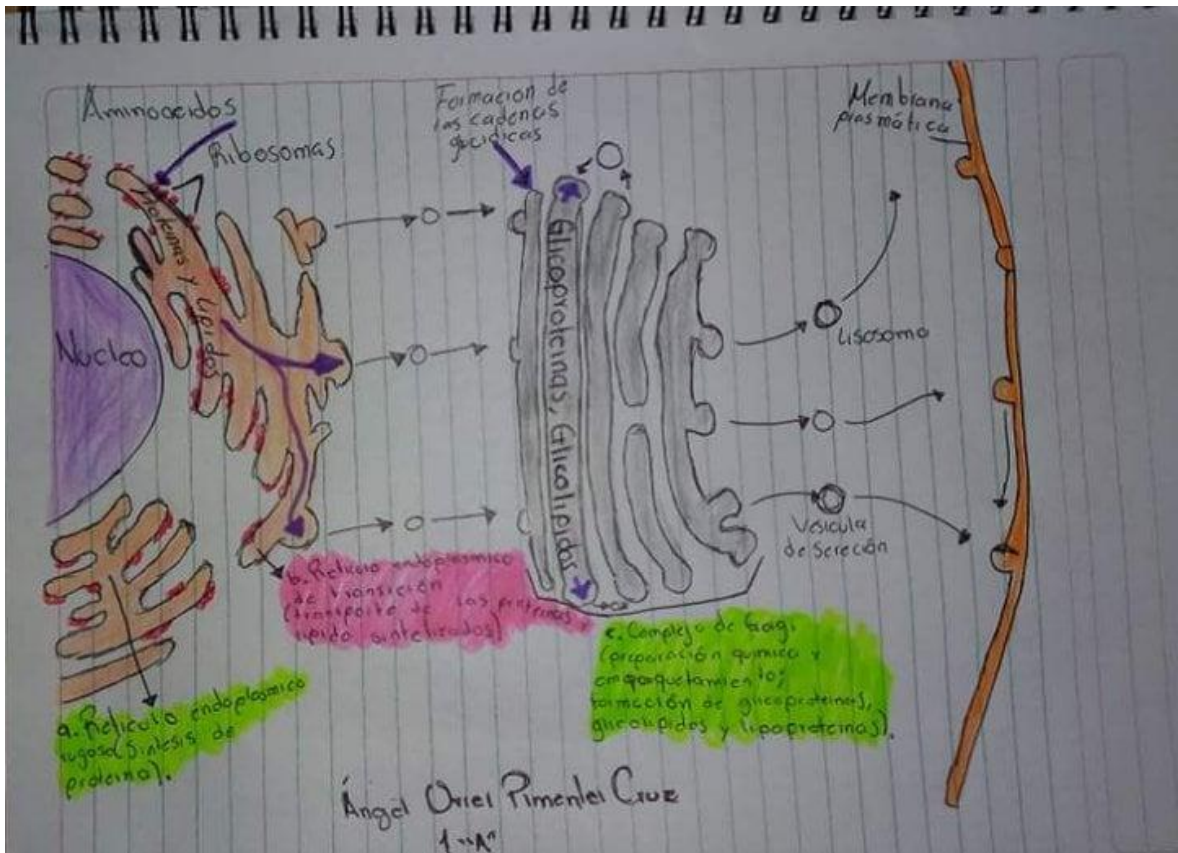 Aminoacidos
Ribosomas
Proteinas y lipidos
Nucleo
Formacion de
las cadenas
glucidicas
Glicoproteinas, Glicolipidos
Membrana
plasmática
Lisosomo
Vesicula
de Sereción
b. Reticulo endoplasmico
de transición
(transporte de las proteinas y
lipido sintetizados)
c. Complejo de Gogi
(preparación quimica y
empaquetamiento;
formación de glicoproteinas,
glicolipidos y lipoproteinas).
a. Reticulo endoplasmico
rugoso (Sintesis de
proteina).
Ángel Oriel Pimentel Cruz
1 "A"